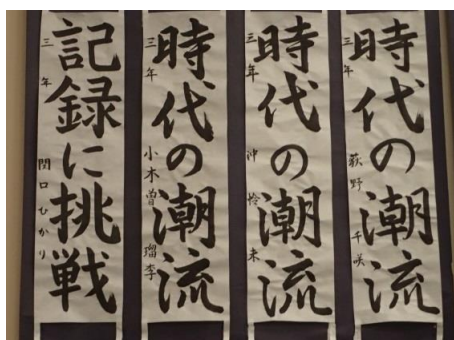 時代の潮流
三年 荻野 千咲
時代の潮流
三年 沖 怜未
時代の潮流
三年 小木曽 瑠李
記録に挑戦
三年 関口 ひかり